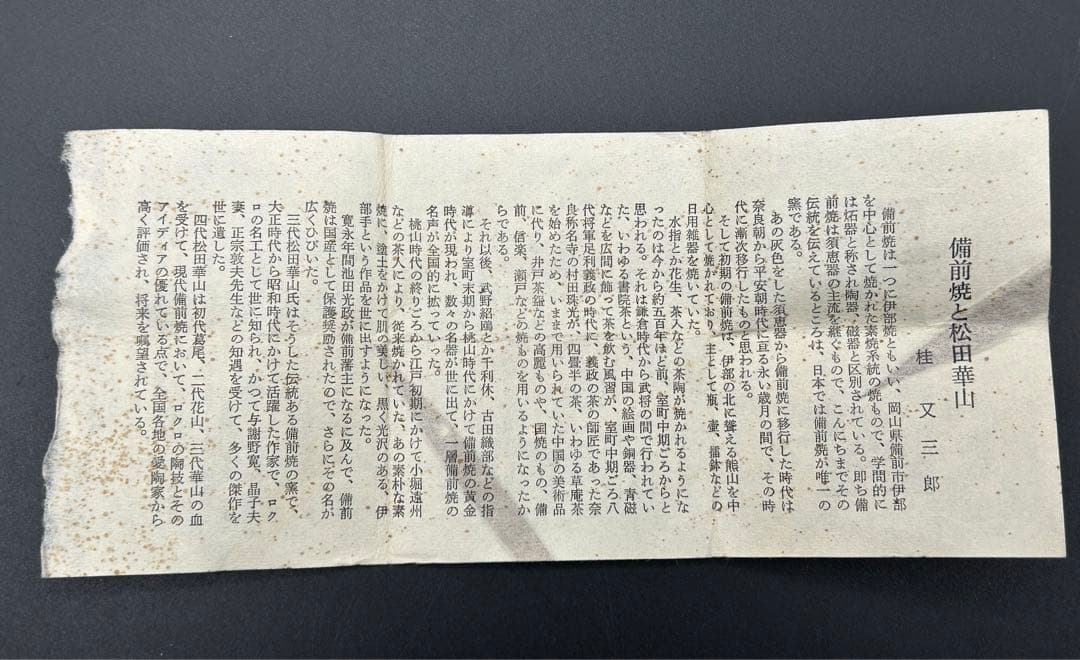 備前焼と松田華山
桂又三郎
備前焼は一つに伊部焼ともいい、岡山県備前市伊部
を中心として焼かれた素焼系統の焼もので、学問的に
は炻器と称され陶器、磁器と区別されている。即ち備
前焼は須恵器の主流を継ぐもので、こんにちまでその
伝統を伝えているところは、日本では備前焼が唯一の
窯である。
あの灰色をした須恵器から備前焼に移行した時代は
奈良朝から平安朝時代に亘る永い歳月の間で、その時
代に漸次移行したものと思われる。
そして初期の備前焼は、伊部の北に聳える熊山を中
心として焼かれており、主として瓶、壷、擂鉢などの
日用雑器を焼いていた。
水指とか花生、茶入などの茶陶が焼かれるようにな
ったのは今から約五百年ほど前、室町中期ごろからと
思われる。それは鎌倉時代から武将の間で行われてい
た、いわゆる書院茶という、中国の絵画や銅器、青磁
などを広間に飾って茶を飲む風習が、室町中期ごろ八
代将軍足利義政の時代に、義政の茶の師匠であった奈
良称名寺の村田珠光が、四畳半の茶、いわゆる草庵茶
を始めたため、いままで用いられていた中国の美術品
に代り、井戸茶碗などの高麗ものや、国焼のもの、備
前、信楽、瀬戸などの焼ものを用いるようになったか
らである。
それ以後、武野紹鴎とか千利休、古田織部などの指
導により室町末期から桃山時代にかけて備前焼の黄金
時代が現われ、数々の名器が世に出て、一層備前焼の
名声が全国的に拡っていった。
桃山時代の終りごろから江戸初期にかけて小堀遠州
などの茶人により、従来焼かれていた、あの素朴な素
焼に、塗土をかけて肌の美しい、黒く光沢のある、伊
部手という作品を世に出すようになった。
寛永年間池田光政が備前藩主になるに及んで、備前
焼は国産として保護奨励されたので、さらにその名が
広くひびいた。
三代松田華山氏はそうした伝統ある備前焼の窯で、
大正時代から昭和時代にかけて活躍した作家で、ロク
ロの名工として世に知られ、かつて与謝野寛、晶子夫
妻、正宗敦夫先生などの知遇を受けて、多くの傑作を
世に遺した。
四代松田華山は初代葛尾、二代花山、三代華山の血
を受けて、現代備前焼において、ロクロの陶技とその
アイディアの優れている点で、全国各地の愛陶家から
高く評価され、将来を嘱望されている。